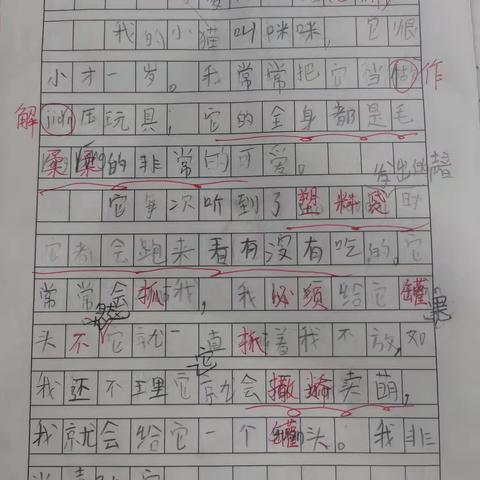 我的小猫叫咪咪，它很
小才一岁。我常常把它当作
解压玩具，它的全身都是毛
柔柔的非常的可爱。
发出的声音
它每次听到了塑料袋时
它都会跑来看有没有吃的。它
常常会抓我，我必须给它罐
头不然它就一直抓着我不放，如果
我还不理它它就会撒娇卖萌，
我就会给它一个罐头。我非